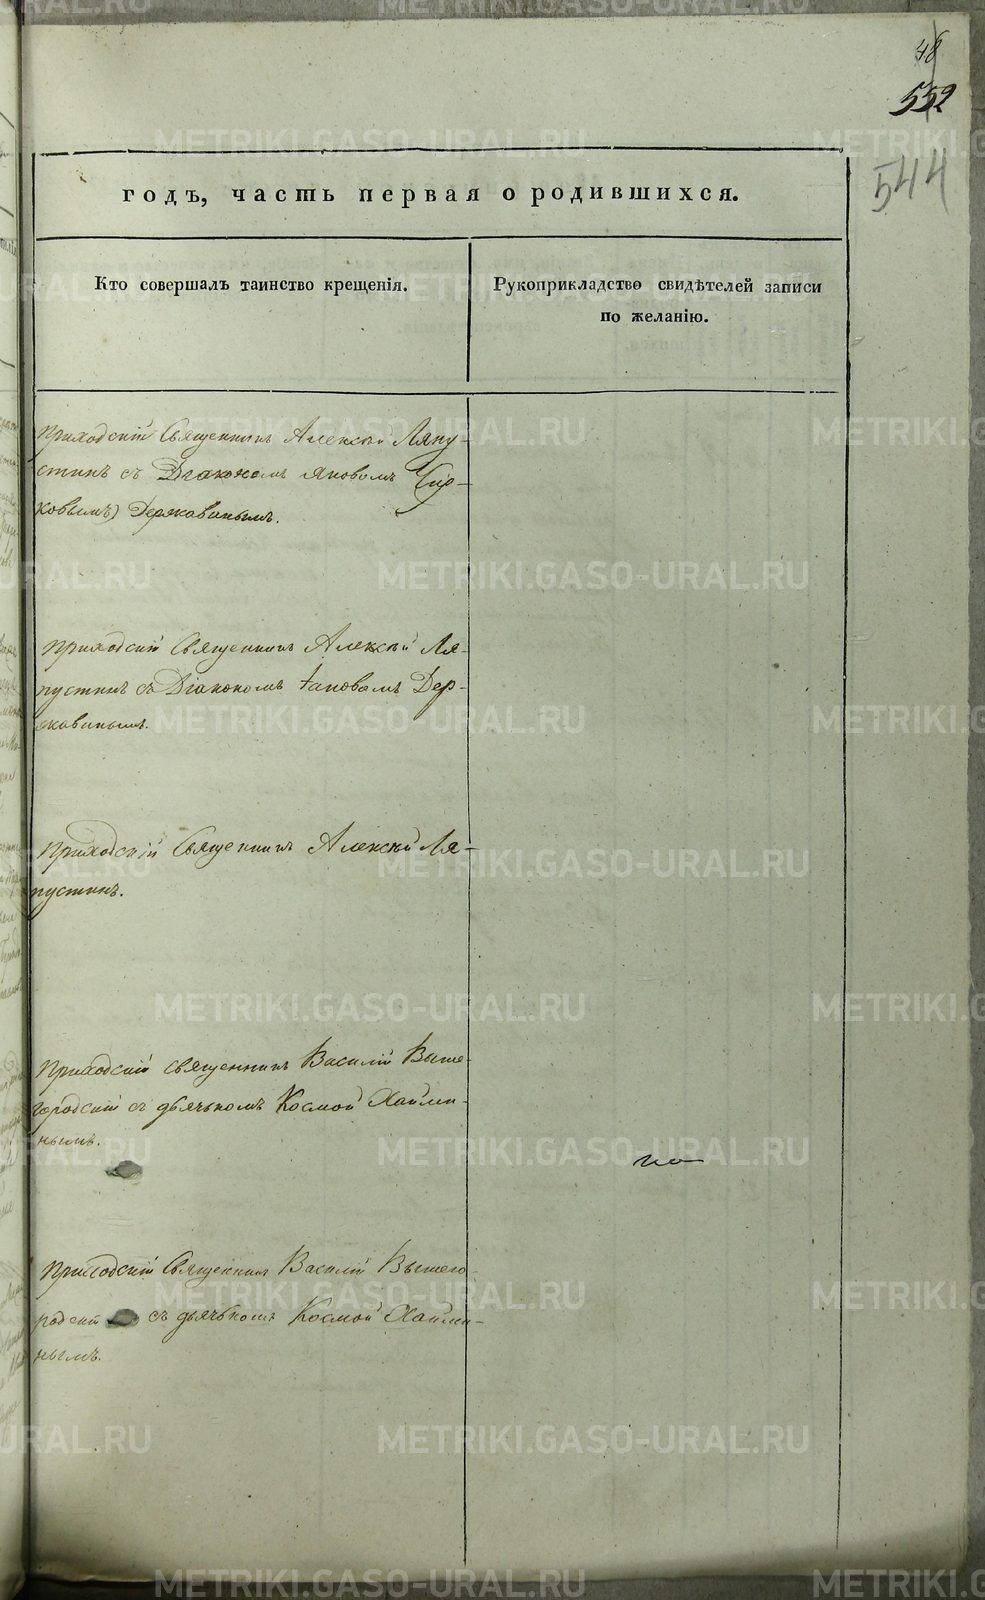 48
552
544
годъ, часть первая о родившихся.
Кто совершалъ таинство крещенія.
Рукоприкладство свидѣтелей записи
по желанію.
Приходскій Священникъ Алексѣй Ляпу-
стинъ съ Діакономъ Яковомъ
Державинымъ.
Приходскій Священникъ Алексѣй Ля-
пустинъ съ Діакономъ Іаковомъ Дер-
жавинымъ.
Приходскій Священникъ Алексѣй Ля-
пустинъ.
Приходскій священникъ Василій Выше-
городскій съ дьячькомъ Космой Хайми-
нымъ.
Приходскій Священникъ Василій Вышего-
родскій съ дьячькомъ Космой Хайми-
нымъ.
METRIKI.GASO-URAL.RU